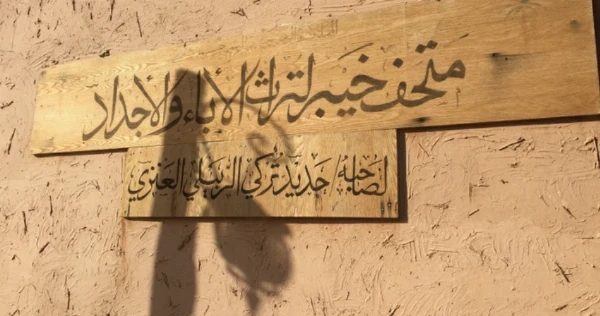 متحف خيبر لتراث الأباء والأجداد
لصاحبه جديد تركي الزبيلي العنزي